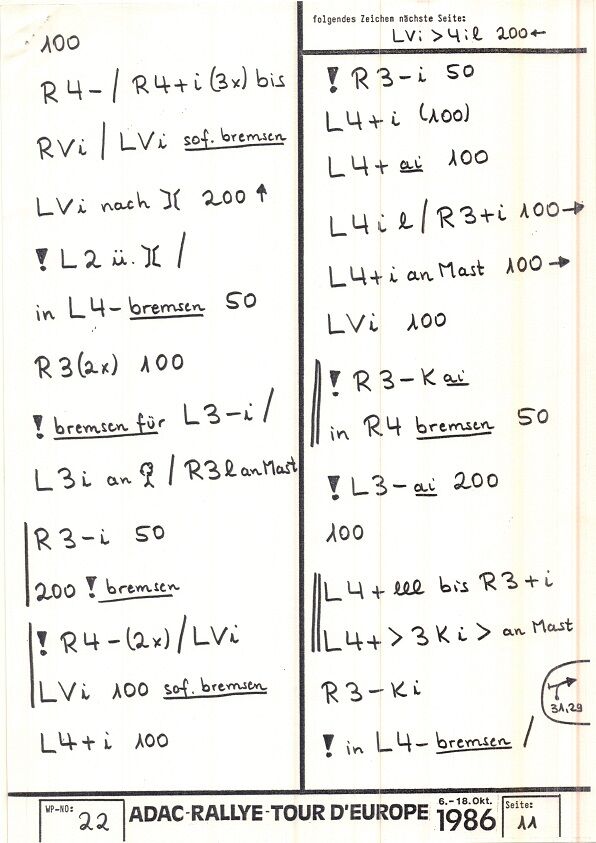 100
R4-/ R4+i (3x) bis
RVi / LVi sof. bremsen
LVi nach ][ 200 ↑
! L2 ü. ][ /
in L4- bremsen 50
R3(2x) 100
! bremsen für L3-i /
L3i an / R3l an Mast
R3-i 50
200 ! bremsen
! R4-(2x) / LVi
LVi 100 sof. bremsen
L4+i 100
folgendes Zeichen nächste Seite:
LVi > 4il 200 ←
! R3-i 50
L4+i (100)
L4+ ai 100
L4il / R3+i 100 →
L4+i an Mast 100 →
LVi 100
! R3-K ai
in R4 bremsen 50
! L3-ai 200
100
L4+ lll bis R3+i
L4+ > 3Ki > an Mast
R3-Ki
31,29
! in L4- bremsen /
WP-NO: 22
ADAC-RALLYE-TOUR D'EUROPE
6.-18.Okt.
1986
Seite: 11